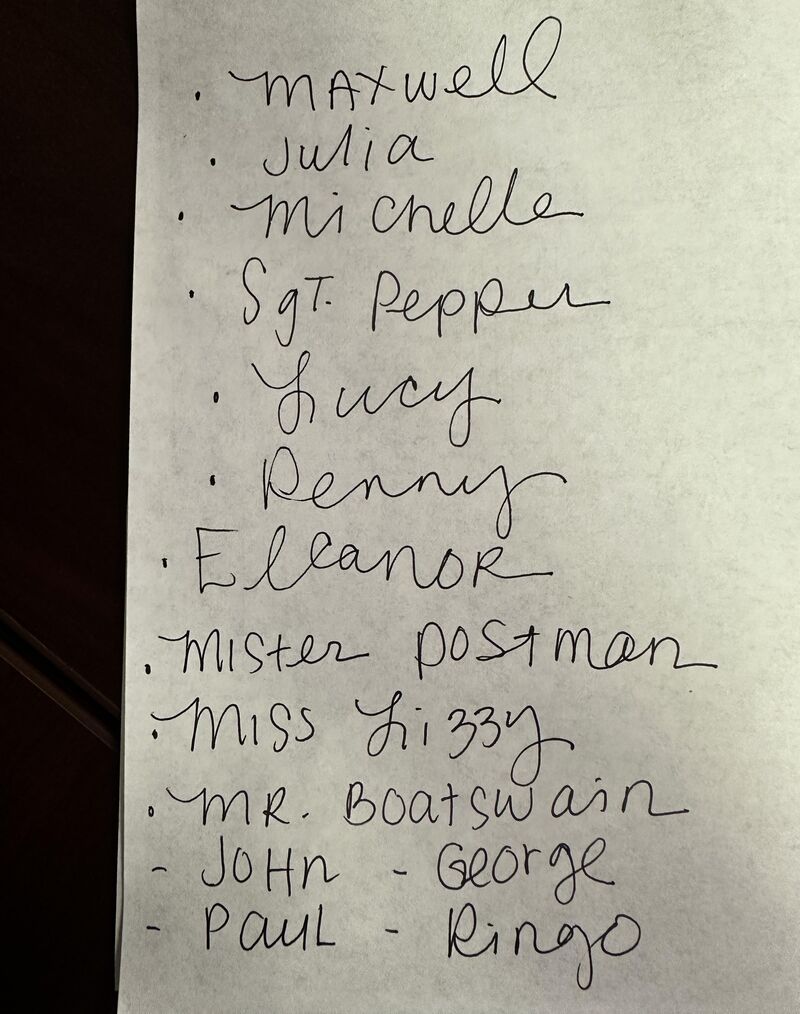 · Maxwell
· Julia
· Michelle
· Sgt. Pepper
· Lucy
· Penny
· Eleanor
· Mister Postman
· Miss Lizzy
· Mr. Boatswain
- John - George
- Paul - Ringo